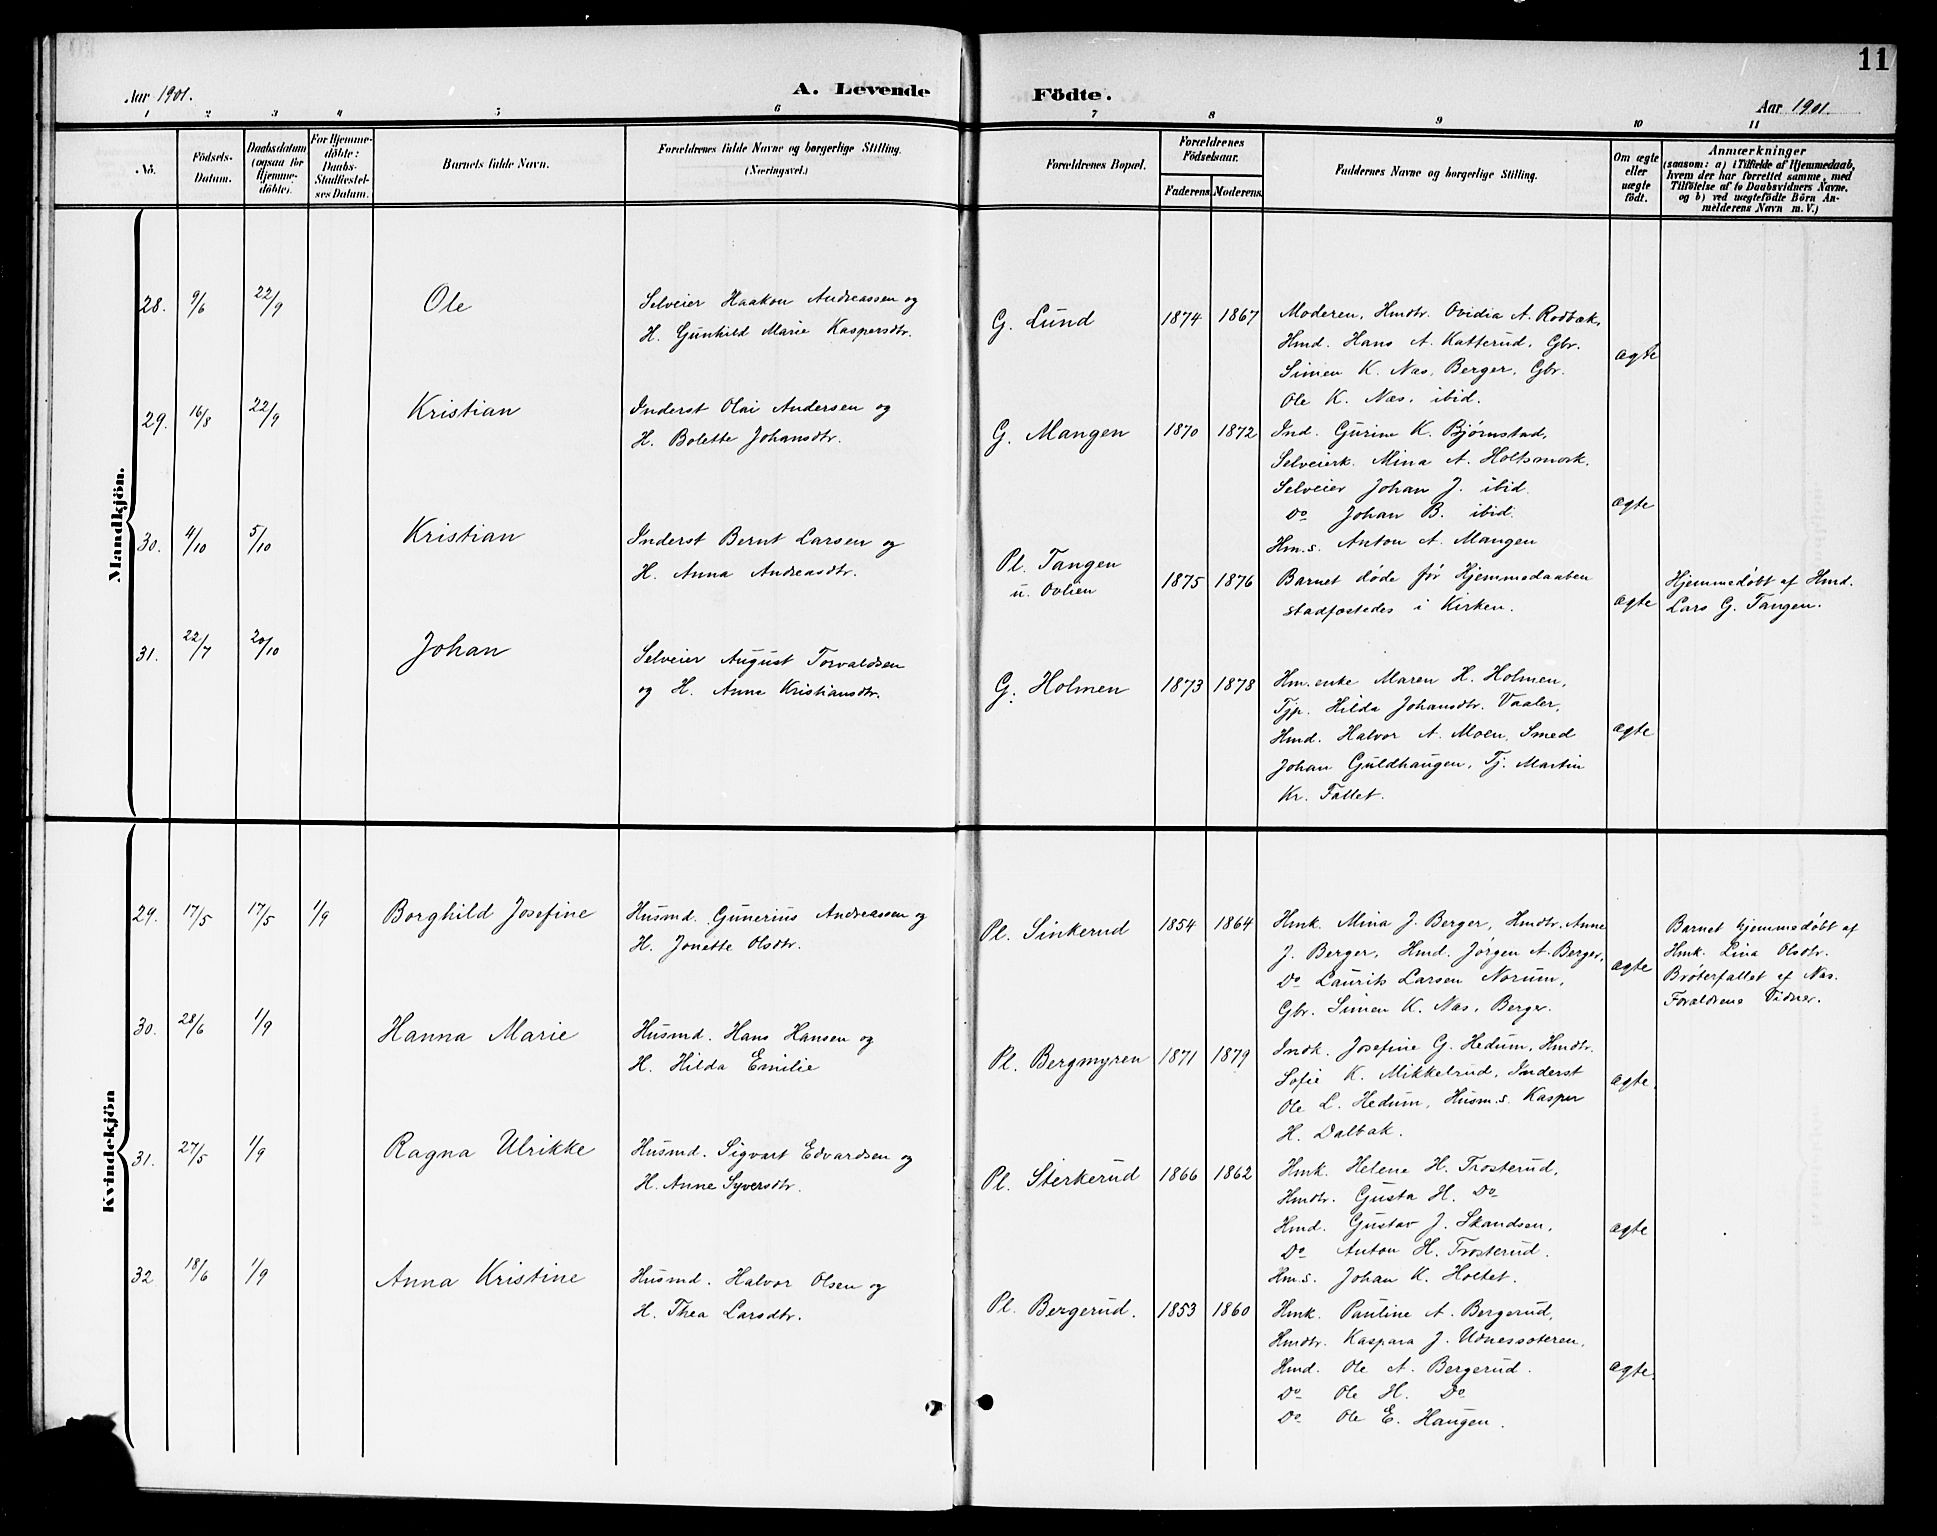 11
Aar 1901.
A. Levende
Födte.
Aar 1901.
1 2 3 4 5 6 7 8 9 10 11
No.
Födsels-
Datum.
Daabsdatum
(ogsaa for
Hjemme-
döbte).
For Hjemme-
döbte:
Daabs-
Stadfæstel-
ses Datum.
Barnets fulde Navn.
Forældrenes fulde Navne og borgerlige Stilling.
(Næringsvei.)
Forældrenes Bopæl.
Forældrenes
Födselsaar.
Faderens. Moderens.
Faddernes Navne og borgerlige Stilling.
Om ægte
eller
uægte
födt.
Anmærkninger
(saasom: a) i Tilfælde af Hjemmedaab,
hvem der har forrettet samme, med
Tilföielse af to Daabsvidners Navne.
og b) ved uægtefödte Börn An-
melderens Navn m. V.)
Mandkjön.
28. 9/6 22/9 Ole
Selveier Haakon Andreassen og
H. Gunhild Marie Kaspersdtr.
G. Lund 1874 1867
Moderen, Hmdtr. Ovidia A. Rodbæk,
Hmd. Hans A. Katterud, Gbr.
Simen K. Næs, Berger, Gbr.
Ole K. Næs, ibid.
ægte
29. 16/8 22/9 Kristian
Inderst Olai Andersen og
H. Bolette Johansdtr.
G. Mangen 1870 1872
Ind. Gurine K. Bjørnstad,
Selveierk. Mina A. Holtsmork.
Selveier Johan J. ibid.
Do Johan B. ibid.
Hm.s. Anton A. Mangen
ægte
30. 4/10 5/10 Kristian
Inderst Bernt Larsen og
H. Anna Andreasdtr.
Pl. Tangen
u. Ovlien
1875 1876
Barnet døde før Hjemmedaaben
stadfæstedes i Kirken.
ægte
Hjemmedøbt af Hmd.
Lars G. Tangen.
31. 22/7 20/10 Johan
Selveier August Torvaldsen
og H. Anna Kristiansdtr.
G. Holmen 1873 1878
Hm.enke Maren H. Holmen,
Tjp. Hilda Johansdtr. Vaaler,
Hmd. Halvor A. Moen, Smed
Johan Guldhaugen, Tj. Martin
Kr. Fallet.
ægte
Kvindekjön
29. 17/5 17/5 1/9 Borghild Josefine
Husmd. Gunerius Andreassen og
H. Jonette Olsdtr.
Pl. Sinkerud 1854 1864
Hmk. Mina J. Berger, Hmdtr. Anne
J. Berger, Hmd. Jørgen A. Berger,
Do Laurits Larsen Norum,
Gbr. Simen K. Næs, Berger.
ægte
Barnet hjemmedøbt af
Hmk. Lina Olsdtr.
Bröterfallet af Næs.
Forældrene Vidner.
30. 28/6 1/9 Hanna Marie
Husmd. Hans Hansen og
H. Hilda Emilie
Pl. Bergmyren 1871 1879
Indk. Josefine G. Hedum, Hmdtr.
Sofie K. Mikkelrud, Inderst
Ole L. Hedum, Husm.s. Kasper
H. Dalbak.
ægte.
31. 27/5 1/9 Ragna Ulrikke
Husmd. Sigvart Edvardsen og
H. Anne Syversdtr.
Pl. Sterkerud 1866 1862
Hmk. Helene H. Trosterud,
Hmdtr. Gusta H. Do
Hmd. Gustav J. Skandsen,
Do Anton H. Trosterud.
Hm.s. Johan K. Holtet.
ægte
32 18/6 1/9 Anna Kristine
Husmd. Halvor Olsen og
H. Thea Larsdtr.
Pl. Bergerud. 1853 1860
Hmk. Pauline A. Bergerud,
Hmdtr. Kaspara J. Udnessæteren,
Hmd. Ole A. Bergerud.
Do Ole H. Do
Do Ole E. Haugen.
ægte.